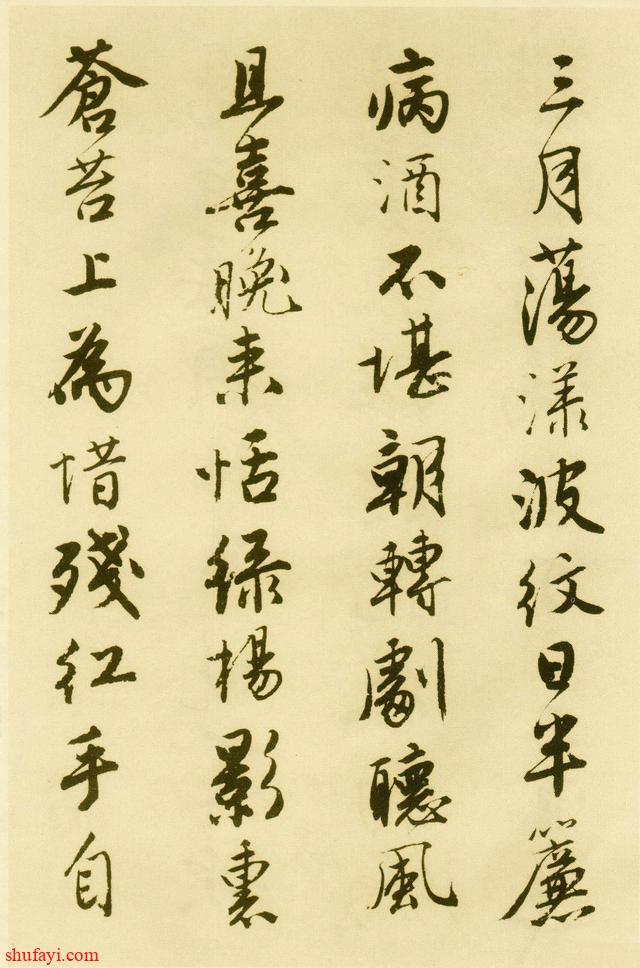 三月蕩漾波紋日半簾
病酒不堪朝轉劇聽風
且喜晚來恬綠楊影裏
蒼苔上為惜殘紅手自
shufayi.com